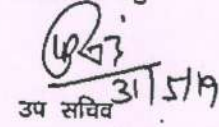 31/5/19
उप सचिव